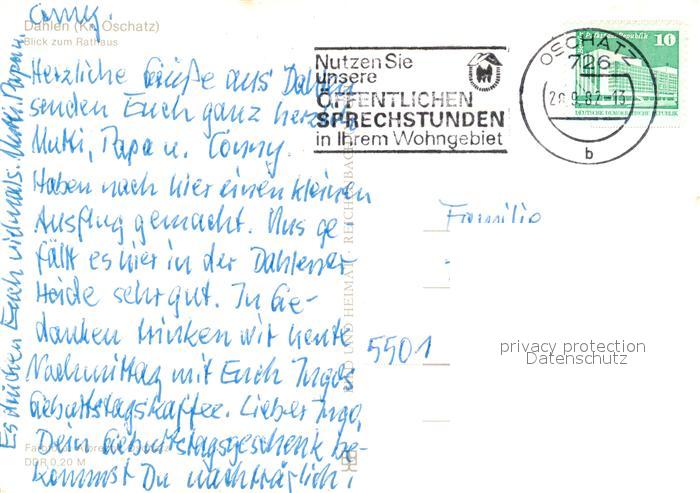 Dahlen (Kr. Oschatz)
Blick zum Rathaus
Herzliche Grüße aus Dahlen
senden Euch ganz herzlich
Mutti, Papa u. Conny.
Haben nach hier einen kleinen
Ausflug gemacht. Uns ge-
fällt es hier in der Dahlener
Heide sehr gut. In Ge-
danken trinken wir heute
Nachmittag mit Euch Ingos
Geburtstagskaffee. Lieber Ingo,
Dein Geburtstagsgeschenk be-
kommst Du nachträglich!
Es drücken Euch vielmals Mutti, Papa u.
Conny.
DDR 0,20 M
BILD UND HEIMAT · REICHENBACH
Nutzen Sie
unsere
ÖFFENTLICHEN
SPRECHSTUNDEN
in Ihrem Wohngebiet
OSCHATZ
726
28.9.82-13
b
10
DEUTSCHE DEMOKRATISCHE REPUBLIK
Familie
5501
privacy protection
Datenschutz